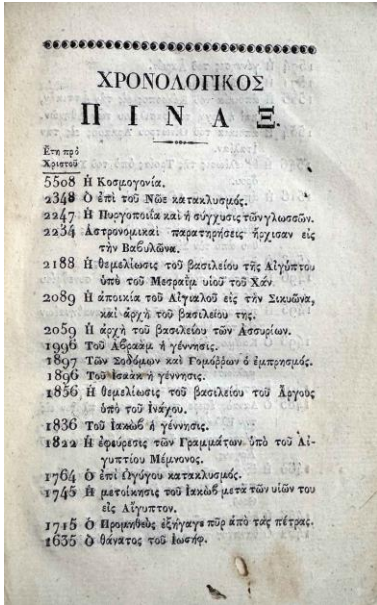 ΧΡΟΝΟΛΟΓΙΚΟΣ
ΠΙΝΑΞ.
Ετη πρό
Χριστοῦ
5508 Η Κοσμογονία.
2348 Ὁ ἐπὶ τοῦ Νῶε κατακλυσμός.
2247 Ἡ Πυργοποιΐα καὶ ἡ σύγχυσις τῶν γλωσσῶν.
2234 Αστρονομικαὶ παρατηρήσεις ἤρχισαν εἰς
τὴν Βαβυλῶνα.
2188 Ἡ θεμελίωσις τοῦ βασιλείου τῆς Αἰγύπτου
ὑπὸ τοῦ Μεσραῒμ υἱοῦ τοῦ Χάν
2089 Ἡ ἀποικία τοῦ Αἰγιαλοῦ εἰς τὴν Σικυῶνα,
καὶ ἀρχὴ τοῦ βασιλείου της.
2059 Ἡ ἀρχὴ τοῦ βασιλείου τῶν Ασσυρίων.
1996 Τοῦ Αβραὰμ ἡ γέννησις.
1897 Τῶν Σοδόμων καὶ Γομόρρων ὁ ἐμπρησμός.
1896 Τοῦ Ισαὰκ ἡ γέννησις.
1856 Ἡ θεμελίωσις τοῦ βασιλείου τοῦ Ἄργους
ὑπὸ τοῦ Ινάχου.
1836 Τοῦ Ιακὼβ ἡ γέννησις.
1822 Ἡ ἐφεύρεσις τῶν Γραμμάτων ὑπὸ τοῦ Αἰ-
γυπτίου Μέμνονος.
1764 Ὁ ἐπὶ Ωγύγου κατακλυσμός.
1745 Ἡ μετοίκησις τοῦ Ιακὼβ μετὰ τῶν υἱῶν του
εἰς Αἴγυπτον.
1715 Ὁ Προμηθεὺς ἐξήγαγε πῦρ ἀπὸ τὰς πέτρας.
1635 Ὁ θάνατος τοῦ Ιωσήφ.